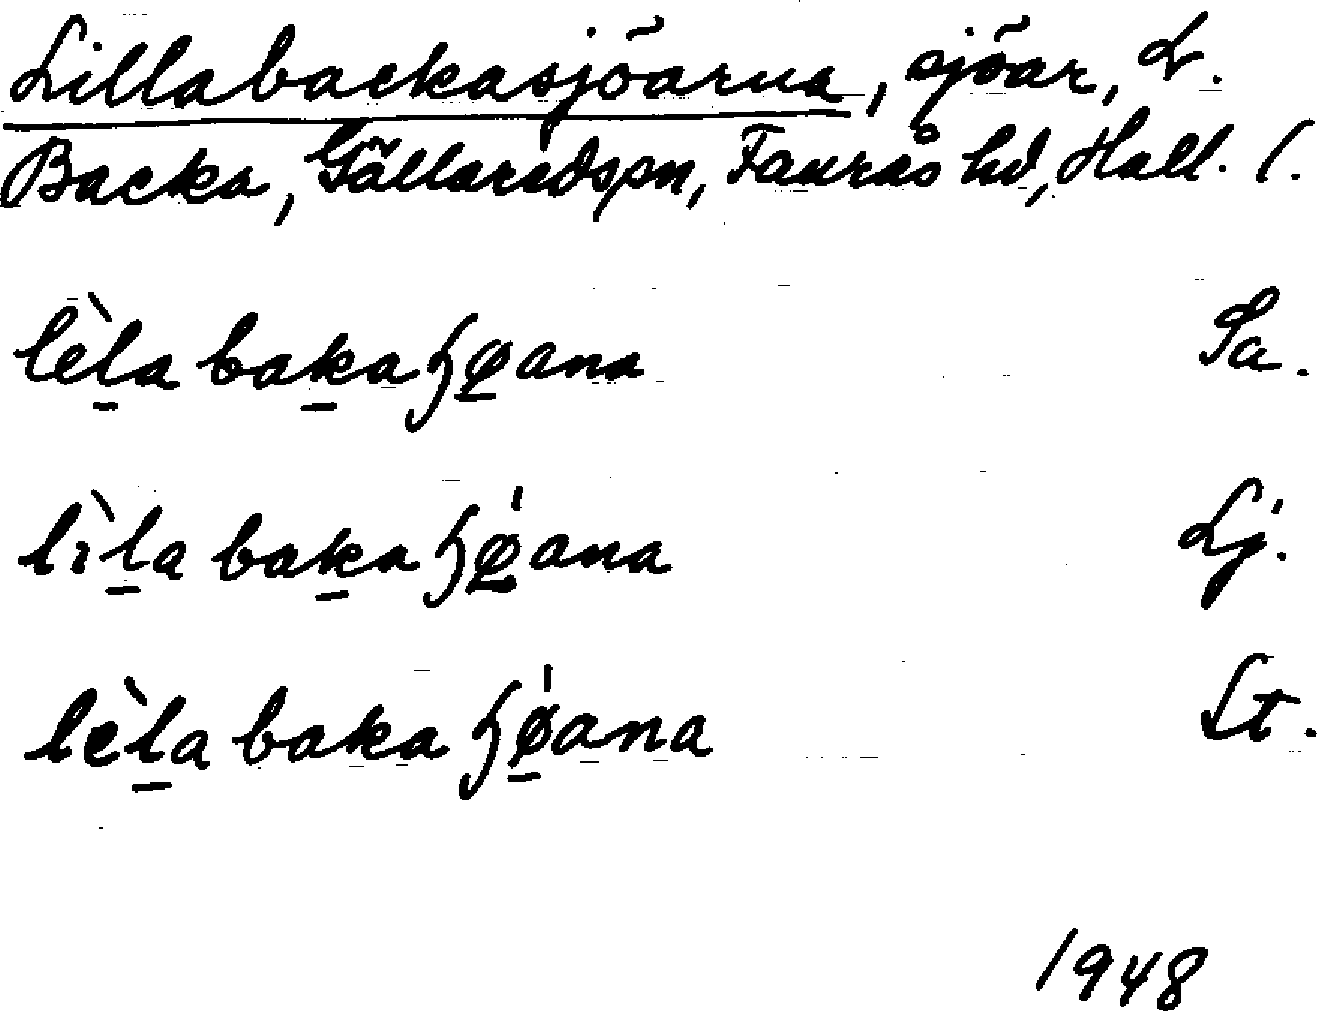 Lillabackasjöarna, sjöar, L.
Backa, Gällaredspn, Faurås hd, Hall. l.
lèl̠a bak̠a ɧø̠ana Sa.
lìl̠a bak̠a ɧǿ̠ana Lj.
lèl̠a baka ɧǿ̠ana Lt.
1948